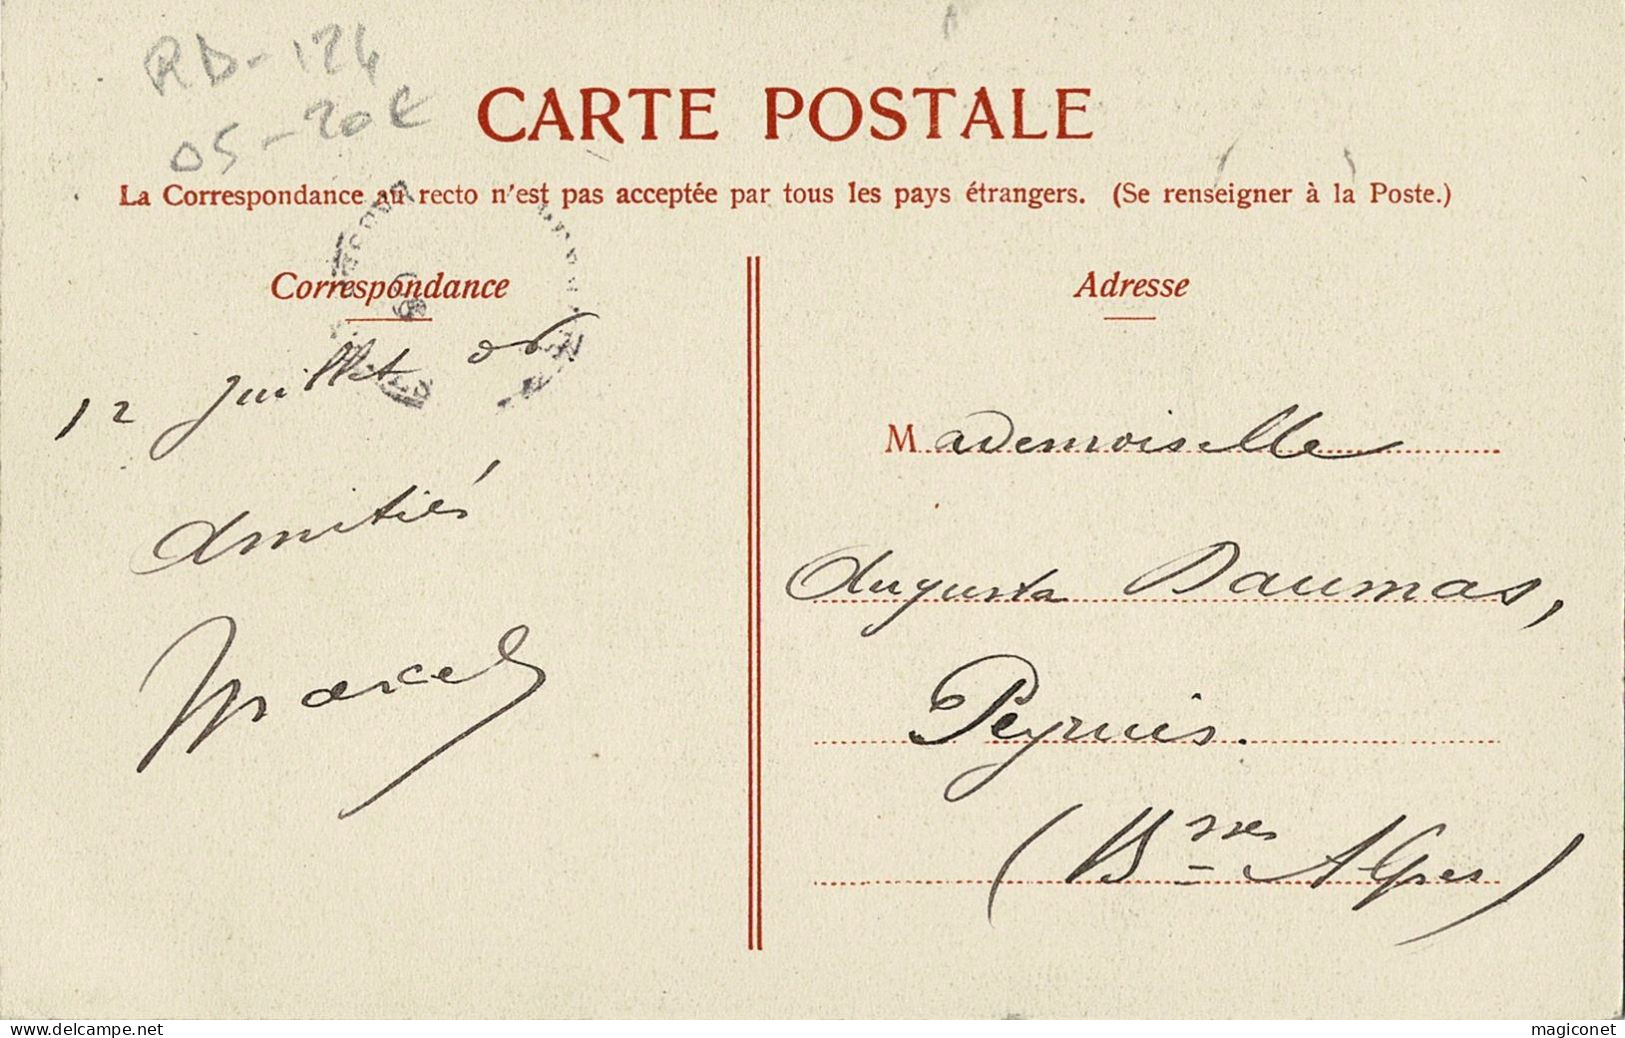 RD-124
05-20€
CARTE POSTALE
La Correspondance au recto n'est pas acceptée par tous les pays étrangers. (Se renseigner à la Poste.)
Correspondance
12 Juillet 06.
Amitiés
Marcel
Adresse
Mademoiselle
Augusta Daumas,
Peyruis.
(Bsses Alpes)
www.delcampe.net
magiconet